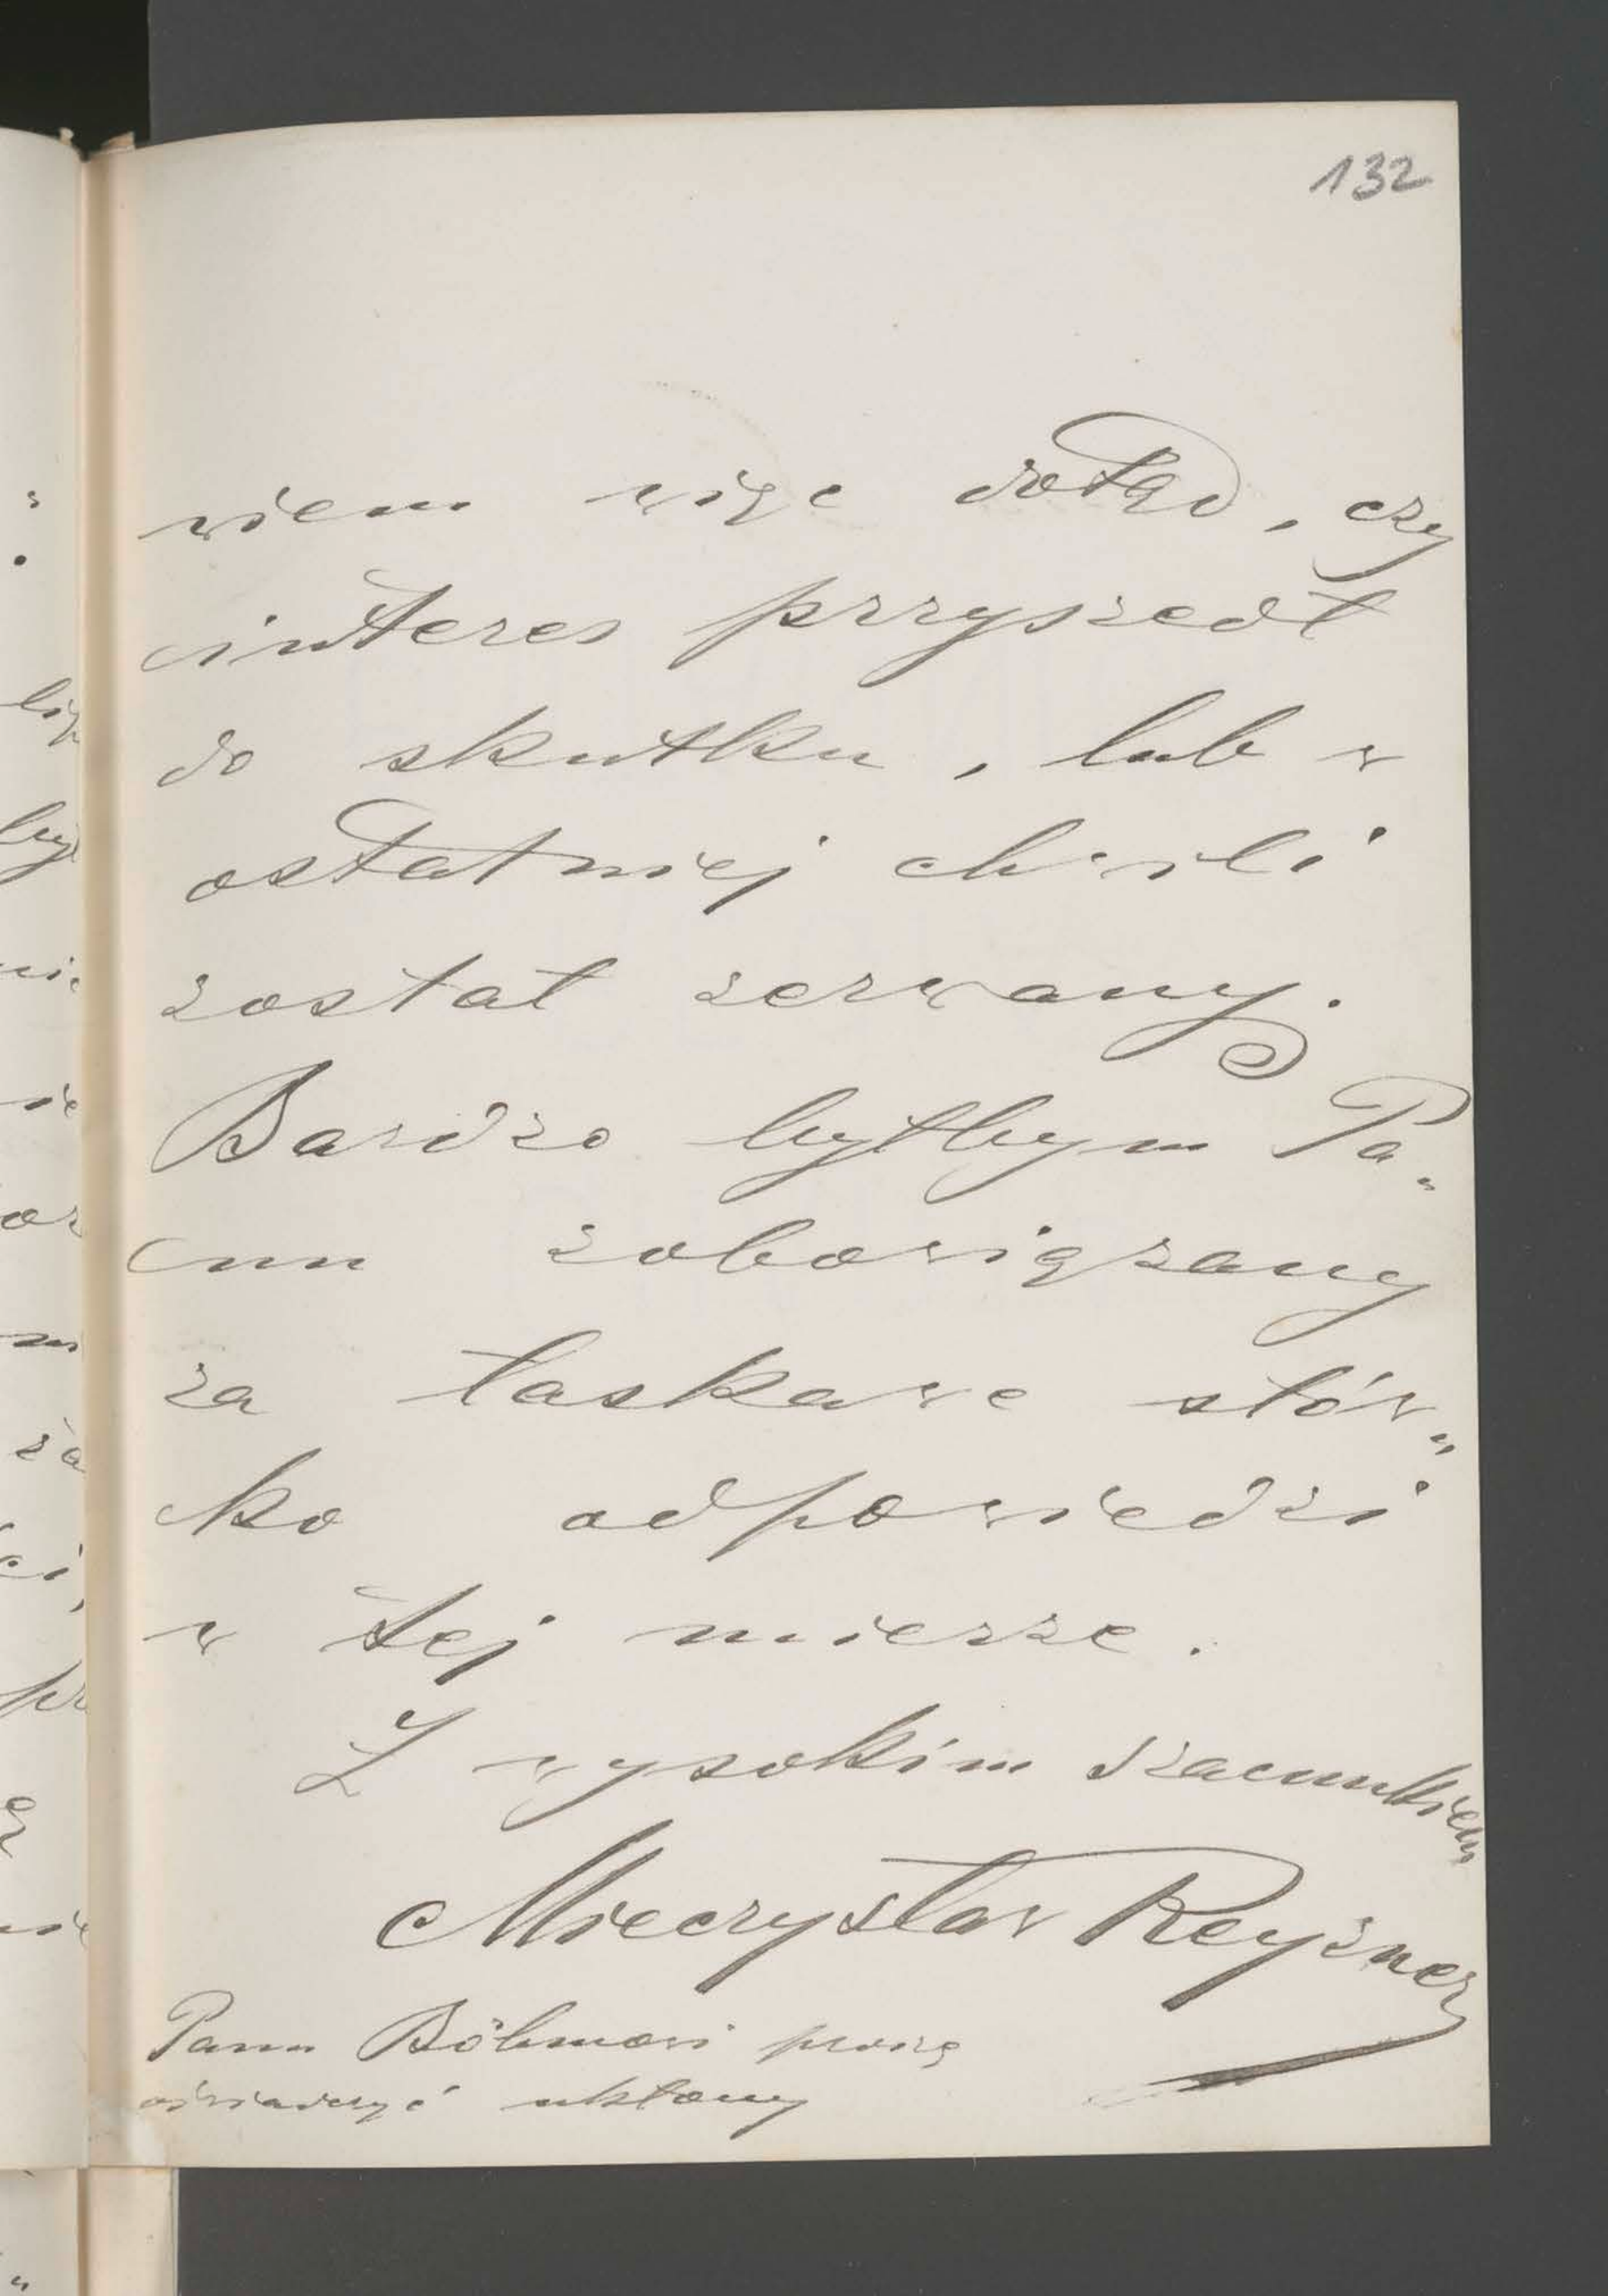 132
wiem więc dotąd, czy
interes przyszedł
do skutku, lub w
ostatniej chwili
został zerwany.
Bardzo byłbym Pa„
nu zobowiązany
za łaskawe słów„
ko odpowiedzi
w tej mierze.
Z wysokim szacunkiem
Mieczysław Reyzner
Panu Böhmowi proszę
oświadczyć ukłony